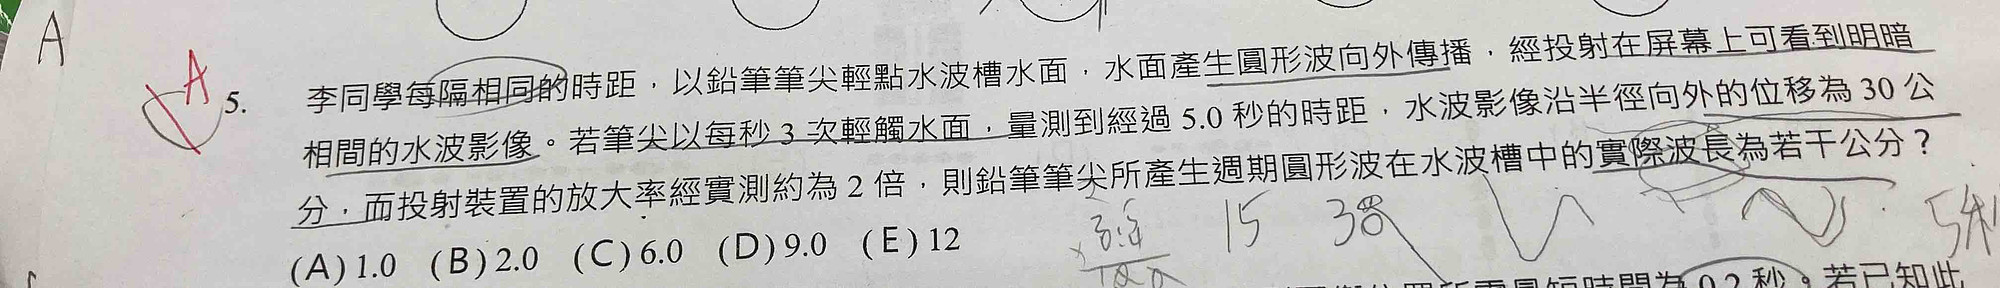 A
A
5. 李同學每隔相同的時距，以鉛筆筆尖輕點水波槽水面，水面產生圓形波向外傳播，經投射在屏幕上可看到明暗
相間的水波影像。若筆尖以每秒 3 次輕觸水面，量測到經過 5.0 秒的時距，水波影像沿半徑向外的位移為 30 公
分，而投射裝置的放大率經實測約為 2 倍，則鉛筆筆尖所產生週期圓形波在水波槽中的實際波長為若干公分？
15
5秒
(A) 1.0 (B) 2.0 (C) 6.0 (D) 9.0 (E) 12
0.2 秒。若已知此